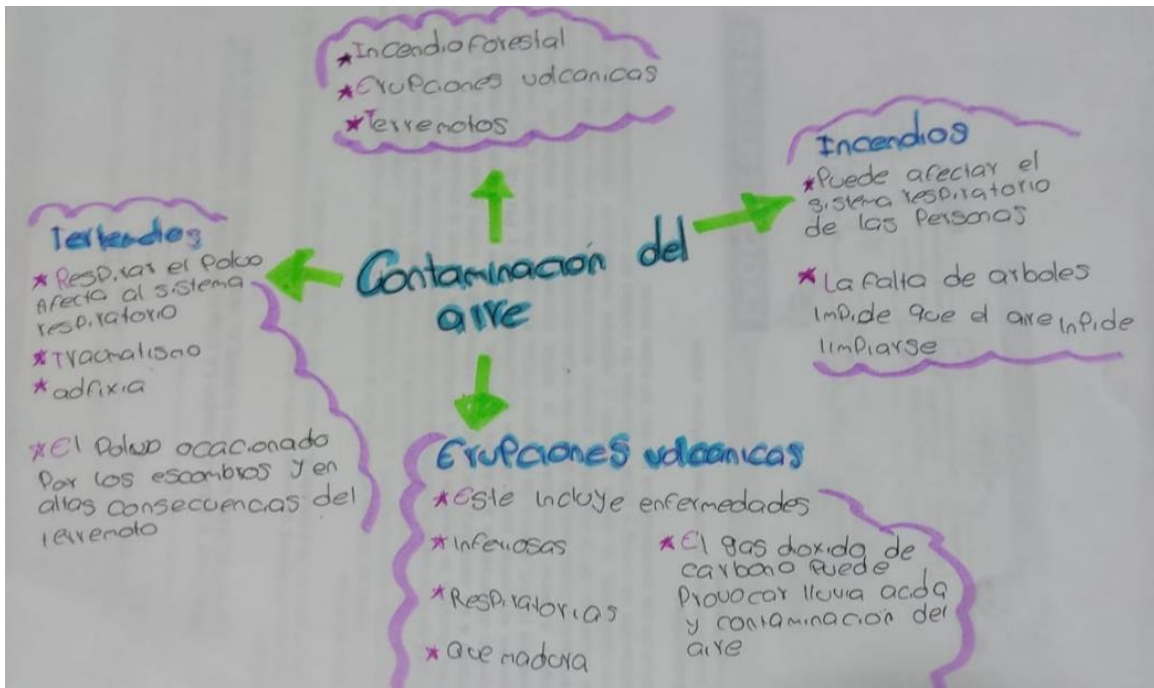 ★Incendio Forestal
★Erupciones volcanicas
★Terremotos
Incendios
★Puede afectar el
sistema respiratorio
de las Personas
★La falta de arboles
impide que el aire inpide
limpiarse
Contaminación del
aire
★Respirar el Polvo
Afecta al sistema
respiratorio
★Tracmalismo
★adfixia
★El Polvo ocacionado
Por los escombros y en
altas consecuencias del
terremoto
Erupciones volcanicas
★Este incluye enfermedades
★infeciosas
★Respiratorias
★Quemadura
★El gas dioxido de
carbono Puede
Provocar lluvia acida
y contaminación del
aire